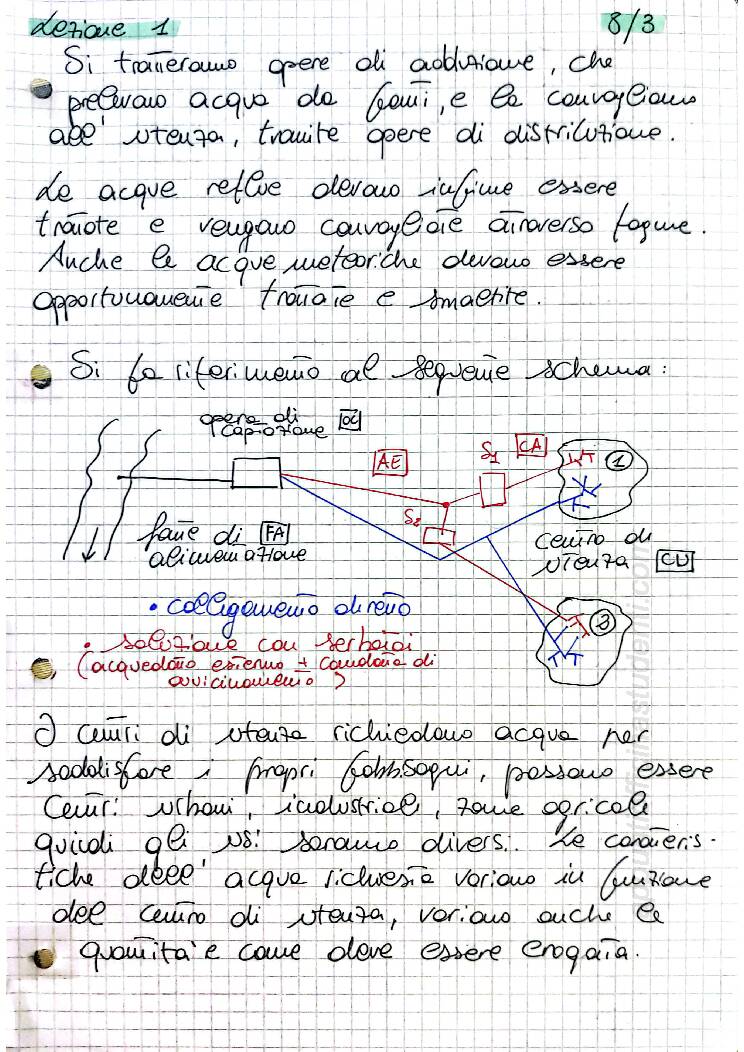 Lezione 1 8/3
Si tratteranno opere di adduzione, che
prelevano acqua da fonti, e la convogliano
all'utenza, tramite opere di distribuzione.
Le acque reflue devono infine essere
trattate e vengono convogliate attraverso fogne.
Anche le acque meteoriche devono essere
opportunamente trattate e smaltite.
Si fa riferimento al seguente schema:
opera di
captazione OC
AE
S1 CA
1
S2
fonte di FA
alimentazione
centro di
utenza CU
2
• collegamento diretto
• soluzione con serbatoi
(acquedotto esterno + condotta di
avvicinamento)
I centri di utenza richiedono acqua per
soddisfare i propri fabbisogni, possono essere
centri urbani, industriali, zone agricole
quindi gli usi saranno diversi. Le caratteris-
tiche dell'acqua richiesta variano in funzione
del centro di utenza, variano anche la
quantità e come deve essere erogata.